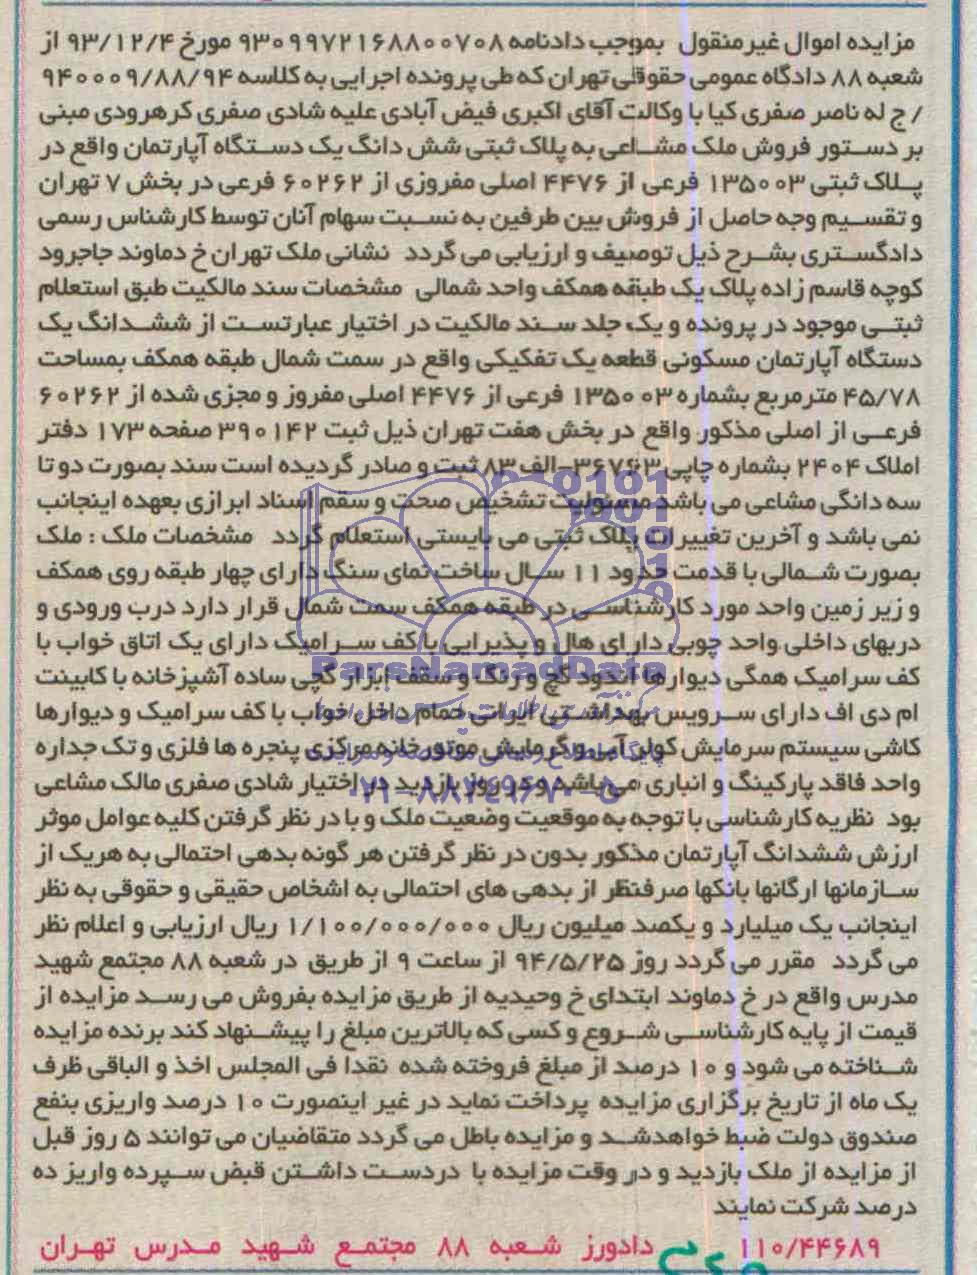 مزایده اموال غیرمنقول بموجب دادنامه ۹۳۰۹۹۷۲۱۶۸۸۰۰۷۰۸ مورخ ۹۳/۱۲/۴ از
شعبه ۸۸ دادگاه عمومی حقوقی تهران که طی پرونده اجرایی به کلاسه ۹۴۰۰۰۹/۸۸/۹۴
/ ج له ناصر صفری کیا با وکالت آقای اکبری فیض آبادی علیه شادی صفری کرهرودی مبنی
بر دستور فروش ملک مشاعی به پلاک ثبتی شش دانگ یک دستگاه آپارتمان واقع در
پلاک ثبتی ۱۳۵۰۰۳ فرعی از ۴۴۷۶ اصلی مفروزی از ۶۰۲۶۲ فرعی در بخش ۷ تهران
و تقسیم وجه حاصل از فروش بین طرفین به نسبت سهام آنان توسط کارشناس رسمی
دادگستری بشرح ذیل توصیف و ارزیابی می گردد نشانی ملک تهران خ دماوند جاجرود
کوچه قاسم زاده پلاک یک طبقه همکف واحد شمالی مشخصات سند مالکیت طبق استعلام
ثبتی موجود در پرونده و یک جلد سند مالکیت در اختیار عبارتست از ششدانگ یک
دستگاه آپارتمان مسکونی قطعه یک تفکیکی واقع در سمت شمال طبقه همکف بمساحت
۴۵/۷۸ مترمربع بشماره ۱۳۵۰۰۳ فرعی از ۴۴۷۶ اصلی مفروز و مجزی شده از ۶۰۲۶۲
فرعی از اصلی مذکور واقع در بخش هفت تهران ذیل ثبت ۳۹۰۱۴۲ صفحه ۱۷۳ دفتر
املاک ۲۴۰۴ بشماره چاپی ۳۶۷۶۳-الف ۸۳ ثبت و صادر گردیده است سند بصورت دو تا
سه دانگی مشاعی می باشد مسئولیت تشخیص صحت و سقم اسناد ابرازی بعهده اینجانب
نمی باشد و آخرین تغییرات پلاک ثبتی می بایستی استعلام گردد مشخصات ملک : ملک
بصورت شمالی با قدمت حدود ۱۱ سال ساخت نمای سنگ دارای چهار طبقه روی همکف
و زیر زمین واحد مورد کارشناسی در طبقه همکف سمت شمال قرار دارد درب ورودی و
دربهای داخلی واحد چوبی دارای هال و پذیرایی با کف سرامیک دارای یک اتاق خواب با
کف سرامیک همگی دیوارها اندود گچ و رنگ و سقف ابزار گچی ساده آشپزخانه با کابینت
ام دی اف دارای سرویس بهداشتی ایرانی حمام داخل خواب با کف سرامیک و دیوارها
کاشی سیستم سرمایش کولر آبی و گرمایش موتورخانه مرکزی پنجره ها فلزی و تک جداره
واحد فاقد پارکینگ و انباری می باشد و در روز بازدید در اختیار شادی صفری مالک مشاعی
بود نظریه کارشناسی با توجه به موقعیت وضعیت ملک و با در نظر گرفتن کلیه عوامل موثر
ارزش ششدانگ آپارتمان مذکور بدون در نظر گرفتن هر گونه بدهی احتمالی به هریک از
سازمانها ارگانها بانکها صرفنظر از بدهی های احتمالی به اشخاص حقیقی و حقوقی به نظر
اینجانب یک میلیارد و یکصد میلیون ریال ۱/۱۰۰/۰۰۰/۰۰۰ ریال ارزیابی و اعلام نظر
می گردد مقرر می گردد روز ۹۴/۵/۲۵ از ساعت ۹ از طریق در شعبه ۸۸ مجتمع شهید
مدرس واقع در خ دماوند ابتدای خ وحیدیه از طریق مزایده بفروش می رسد مزایده از
قیمت از پایه کارشناسی شروع و کسی که بالاترین مبلغ را پیشنهاد کند برنده مزایده
شناخته می شود و ۱۰ درصد از مبلغ فروخته شده نقدا فی المجلس اخذ و الباقی ظرف
یک ماه از تاریخ برگزاری مزایده پرداخت نماید در غیر اینصورت ۱۰ درصد واریزی بنفع
صندوق دولت ضبط خواهدشد و مزایده باطل می گردد متقاضیان می توانند ۵ روز قبل
از مزایده از ملک بازدید و در وقت مزایده با دردست داشتن قبض سپرده واریز ده
درصد شرکت نمایند
۱۱۰/۴۴۶۸۹ دادورز شعبه ۸۸ مجتمع شهید مدرس تهران
ParsNamadData
۰۲۱-۸۸۳۴۹۶۷۰-۵